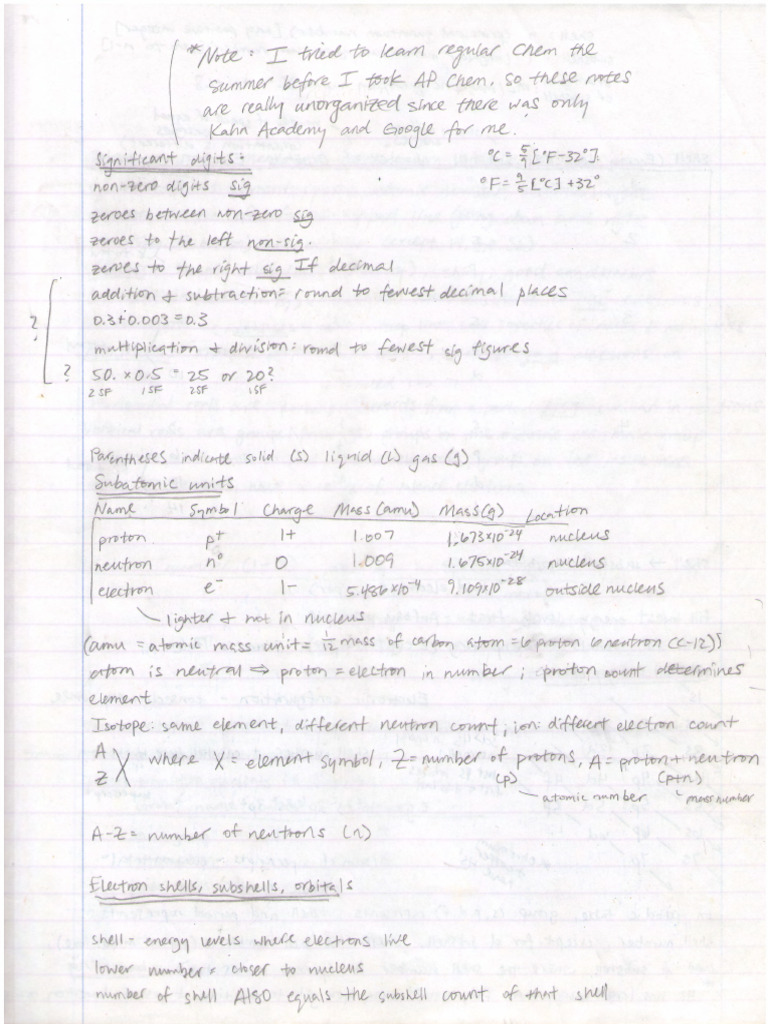 *Note: I tried to learn regular chem the
summer before I took AP Chem, so these notes
are really unorganized since there was only
Kahn Academy and Google for me.
Significant digits:
°C = 5/9 [°F-32°]
non-zero digits sig
°F = 9/5 [°C] +32°
zeroes between non-zero sig
zeroes to the left non-sig.
zeroes to the right sig If decimal
addition & subtraction = round to fewest decimal places
? 0.3+0.003 = 0.3
multiplication & division: round to fewest sig figures
? 50. × 0.5 = 25 or 20?
2SF 1SF 2SF 1SF
Parentheses indicate solid (s) liquid (l) gas (g)
Subatomic units
Name Symbol Charge Mass (amu) Mass (g) Location
proton p⁺ 1+ 1.007 1.673×10⁻²⁴ nucleus
neutron n⁰ 0 1.009 1.675×10⁻²⁴ nucleus
electron e⁻ 1- 5.486×10⁻⁴ 9.109×10⁻²⁸ outside nucleus
lighter & not in nucleus
(amu = atomic mass unit = 1/12 mass of carbon atom = 6 proton 6 neutron (C-12))
atom is neutral ⇒ proton = electron in number; proton count determines
element
Isotope: same element, different neutron count; ion: different electron count
A
Z X where X = element symbol, Z = number of protons, A = proton + neutron
(p) (p+n)
atomic number mass number
A-Z = number of neutrons (n)
Electron shells, subshells, orbitals
shell = energy levels where electrons live
lower number = closer to nucleus
number of shell Also equals the subshell count of that shell